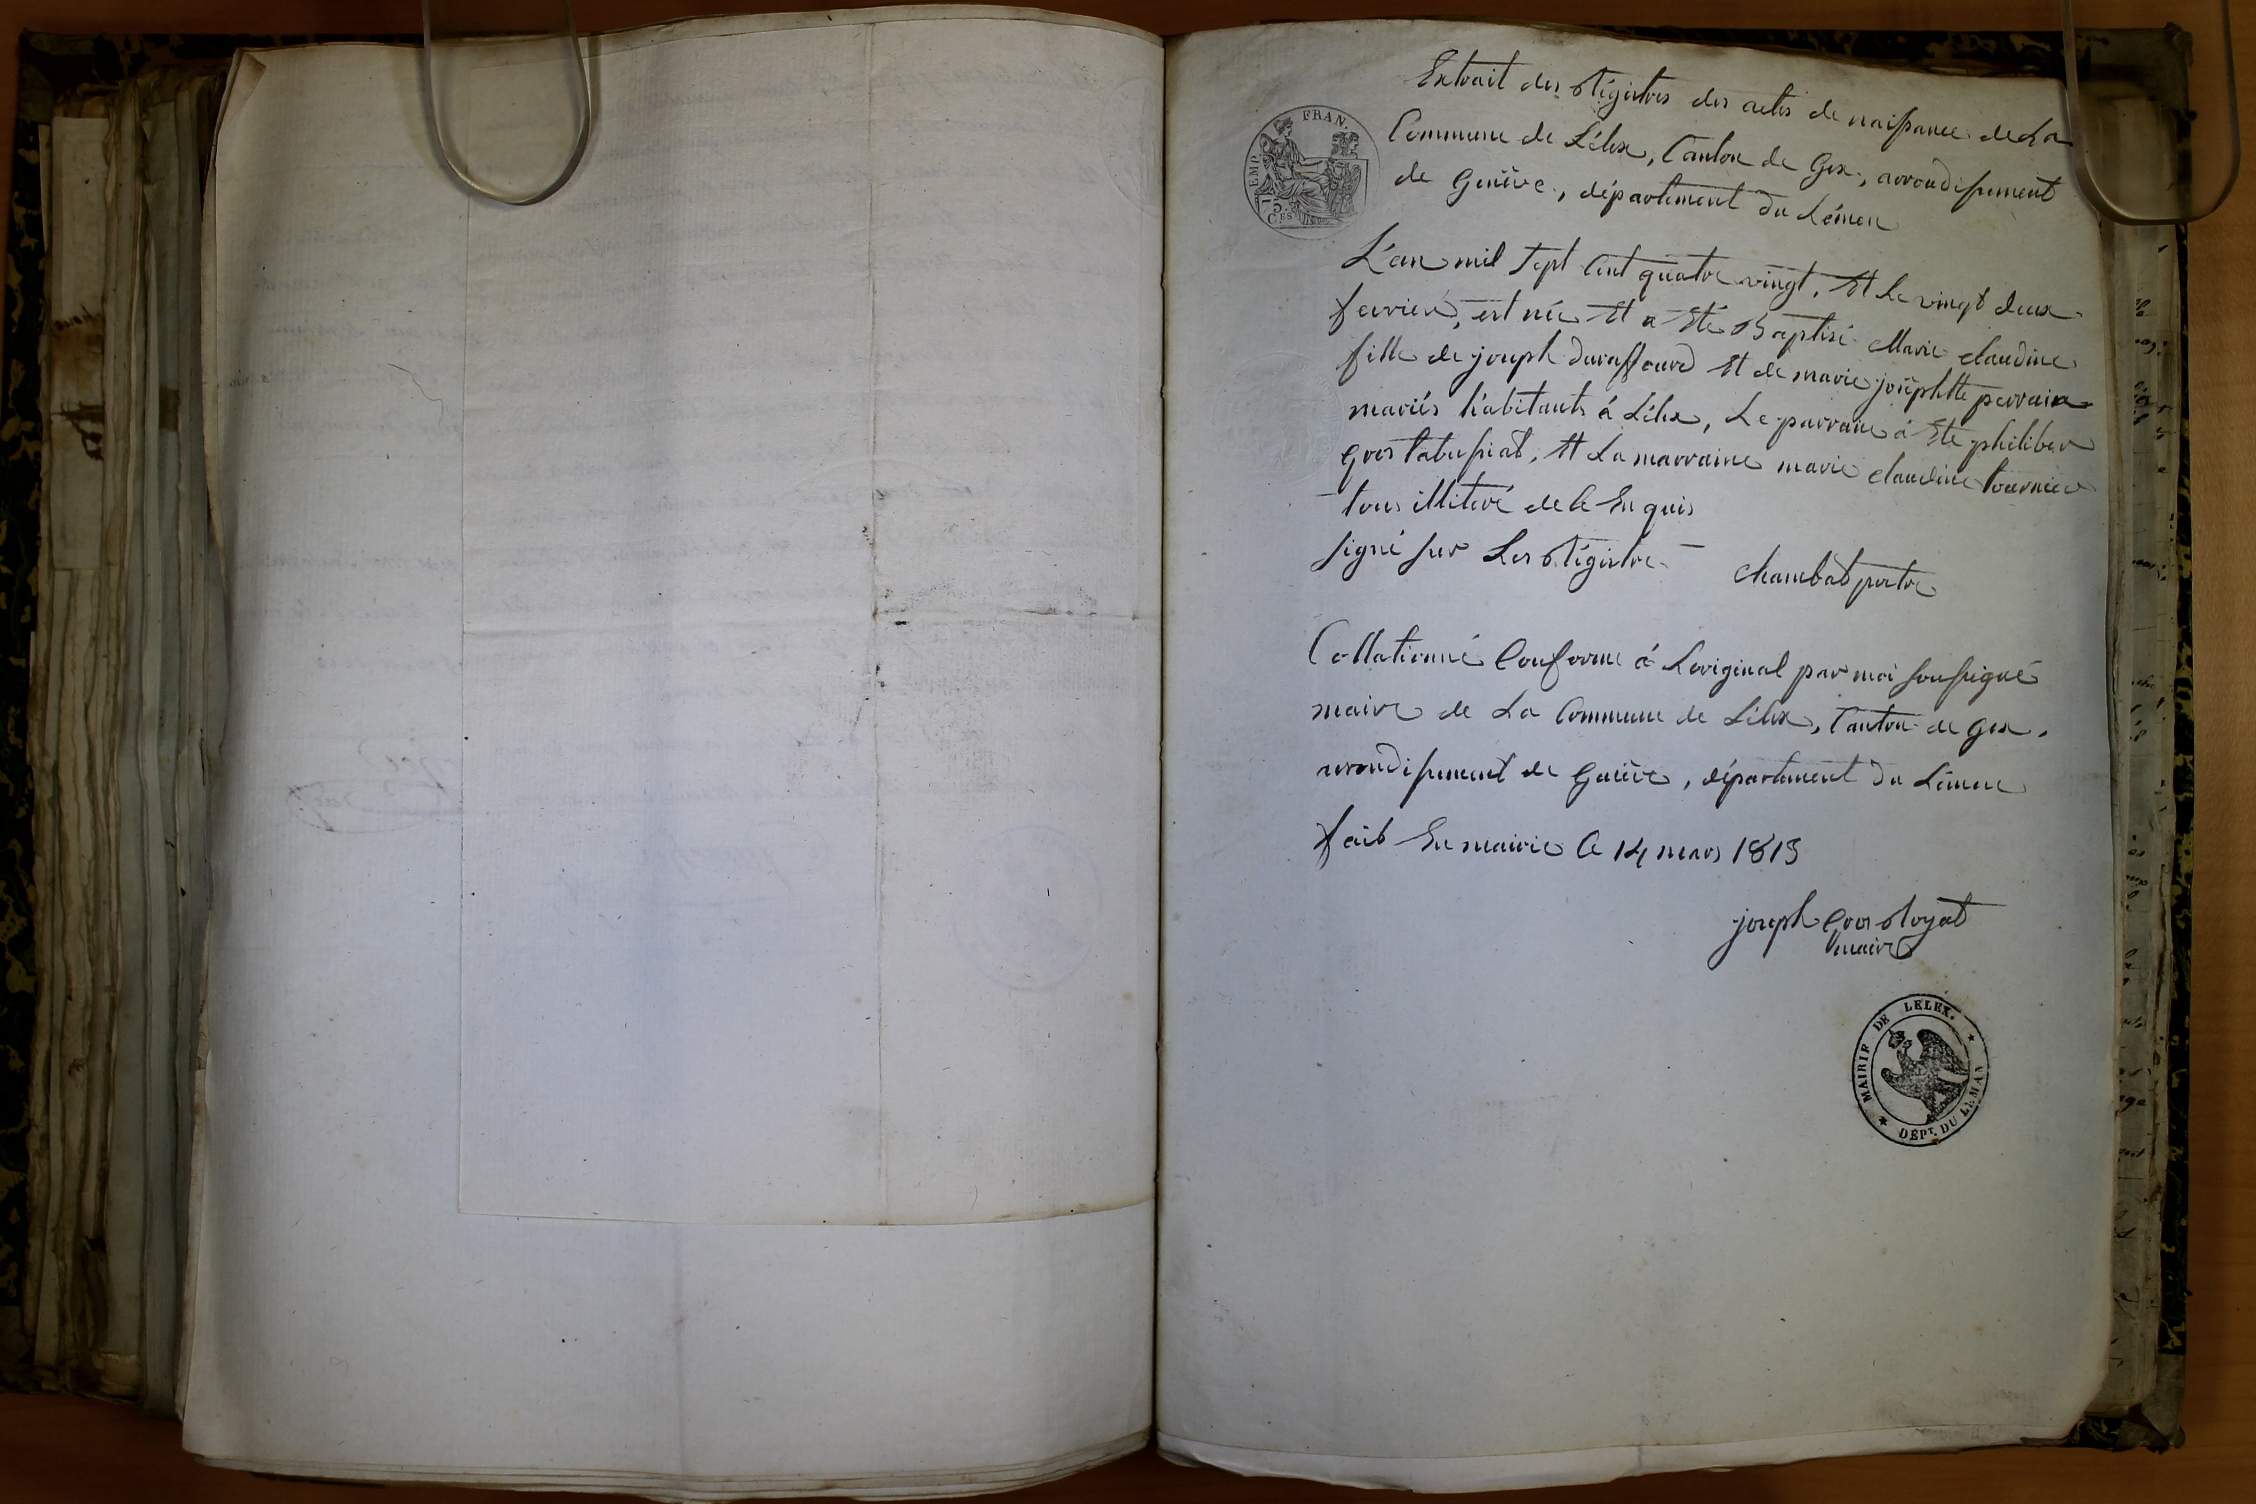 Extrait des Régistres des actes de naissance de La
Commune de Lélex, Canton de Gex, arrondissement
de Genève, département du Léman
EMP. FRAN.
75 CES
L'an mil sept Cent quatre vingt, Et Le vingt deux
fevrier, est née Et a Eté Baptisé Marie claudine
fille de joseph duraffourd Et de marie josephtte perrain
mariés habitants á Lélex, Le parrain á Eté philiber
gros tabussiat, Et La marraine marie claudine tournier
tous illiteré de ce Enquis
signé sur Les Régistre - Chambat pretre
Collationné Conforme á Loriginal par moi soussigné
maire de La Commune de Lélex, Canton de Gex,
arrondissement de Genève, département du Léman
fait En mairie Ce 14 mars 1813
joseph Gros Royat
maire
MAIRIE DE LELEX.
DÉPT. DU LÉMAN